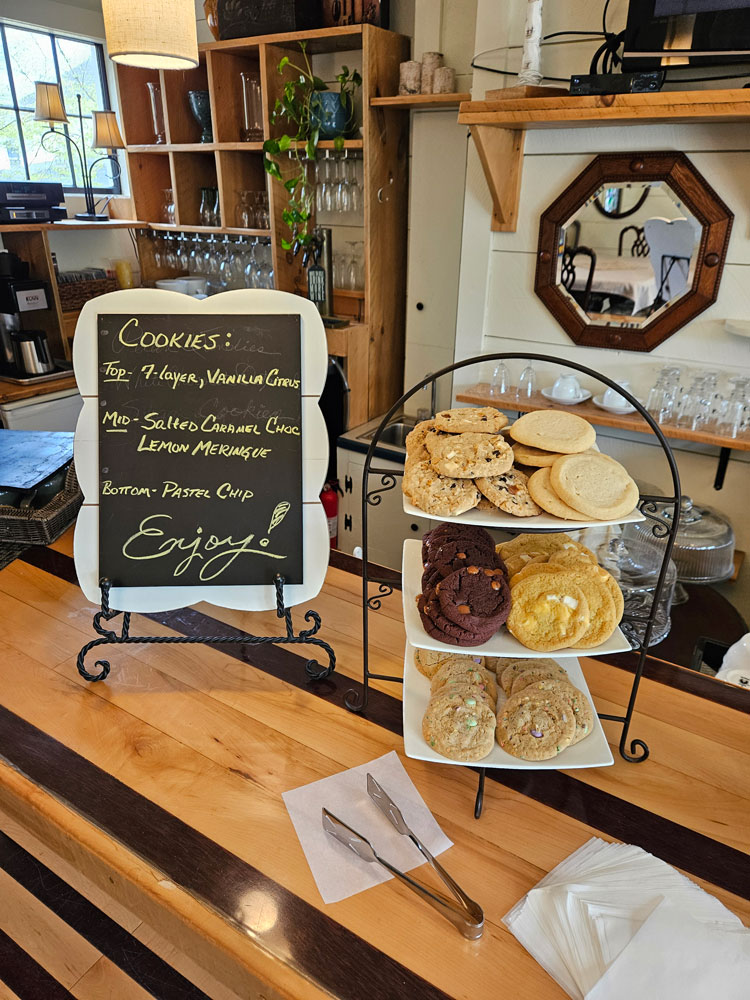 COOKIES:
TOP- 7-LAYER, VANILLA CITRUS
MID- SALTED CARAMEL CHOC
LEMON MERINGUE
BOTTOM- PASTEL CHIP
Enjoy!